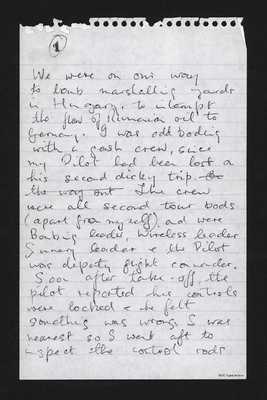 1
We were on our way
to bomb marshalling yards
in Hungary, to interupt
the flow of Rumanian oil to
Germany. I was odd boding
with a gash crew, since
my Pilot had been lost on
his second dicky trip.
the way out The crew
were all second tour bods
(apart from myself) and were
Bombing leader, Wireless leader
Gunnery leader & the Pilot
was deputy flight commander.
Soon after take-off, the
pilot reported his controls
were locked & he felt
something was wrong. I was
nearest so I went aft to
inspect the control rods